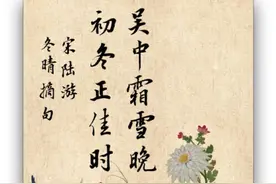 吴中霜雪晚
初冬正佳时
宋陆游
冬晴摘句